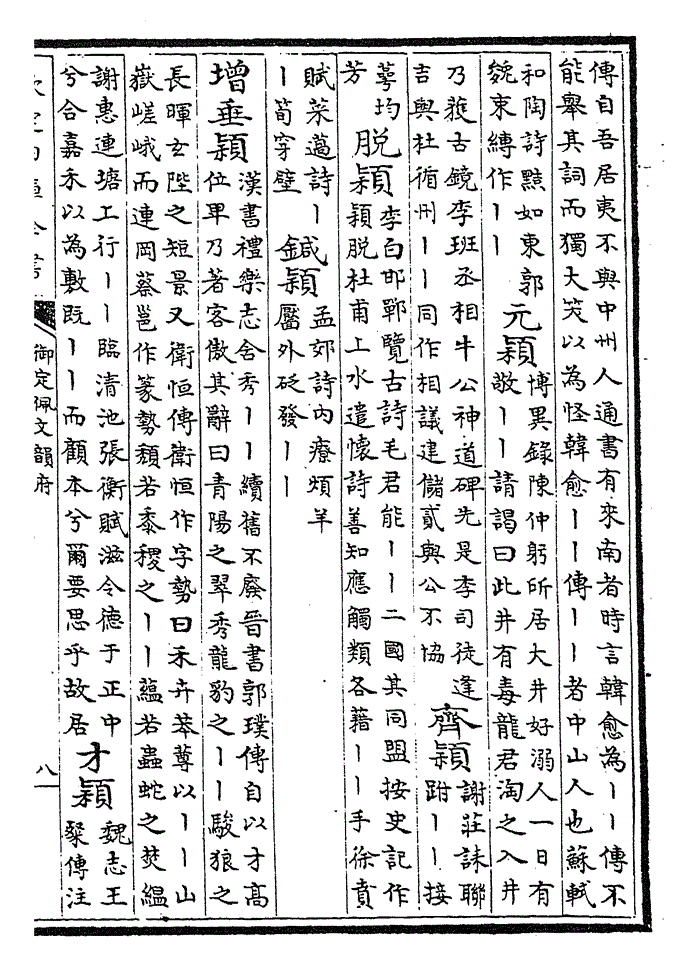 傳自吾居夷不與中州人通書有來南者時言韓愈為丨丨傳不
能舉其詞而獨大笑以為怪韓愈丨丨傳丨丨者中山人也蘇軾
和陶詩黙如東郭
㕙束縛作丨丨
元穎
博異錄陳仲躬所居大井好溺人一日有
敬丨丨請謁曰此井有毒龍君淘之入井
乃獲古鏡李班丞相牛公神道碑先是李司徒逢
吉與杜循州丨丨同作相議建儲貳與公不協
齊穎
謝莊誄聯
跗丨丨接
萼均
芳
脱穎
李白邯鄲覽古詩毛君能丨丨二國其同盟按史記作
穎脱杜甫上水遣懷詩善知應觸類各藉丨丨手徐賁
賦菜薖詩丨
丨筍穿壁
鍼穎
孟郊詩内療煩羊
靨外砭發丨丨
增垂穎
漢書禮樂志舍秀丨丨續舊不廢晉書郭璞傳自以才高
位卑乃著客傲其辭曰青陽之翠秀龍豹之丨丨駿狼之
長暉玄陛之短景又衛恒傳衛恒作字勢曰禾卉苯䔿以丨丨山
嶽嵯峨而連岡蔡邕作篆勢頹若黍稷之丨丨蘊若蟲蛇之焚緼
謝惠連塘上行丨丨臨清池張衡賦滋令德于正中
兮合嘉禾以為敷既丨丨而顧本兮爾要思乎故居
才穎
魏志王
粲傳注
欽定四庫全書
御定佩文韻府
八